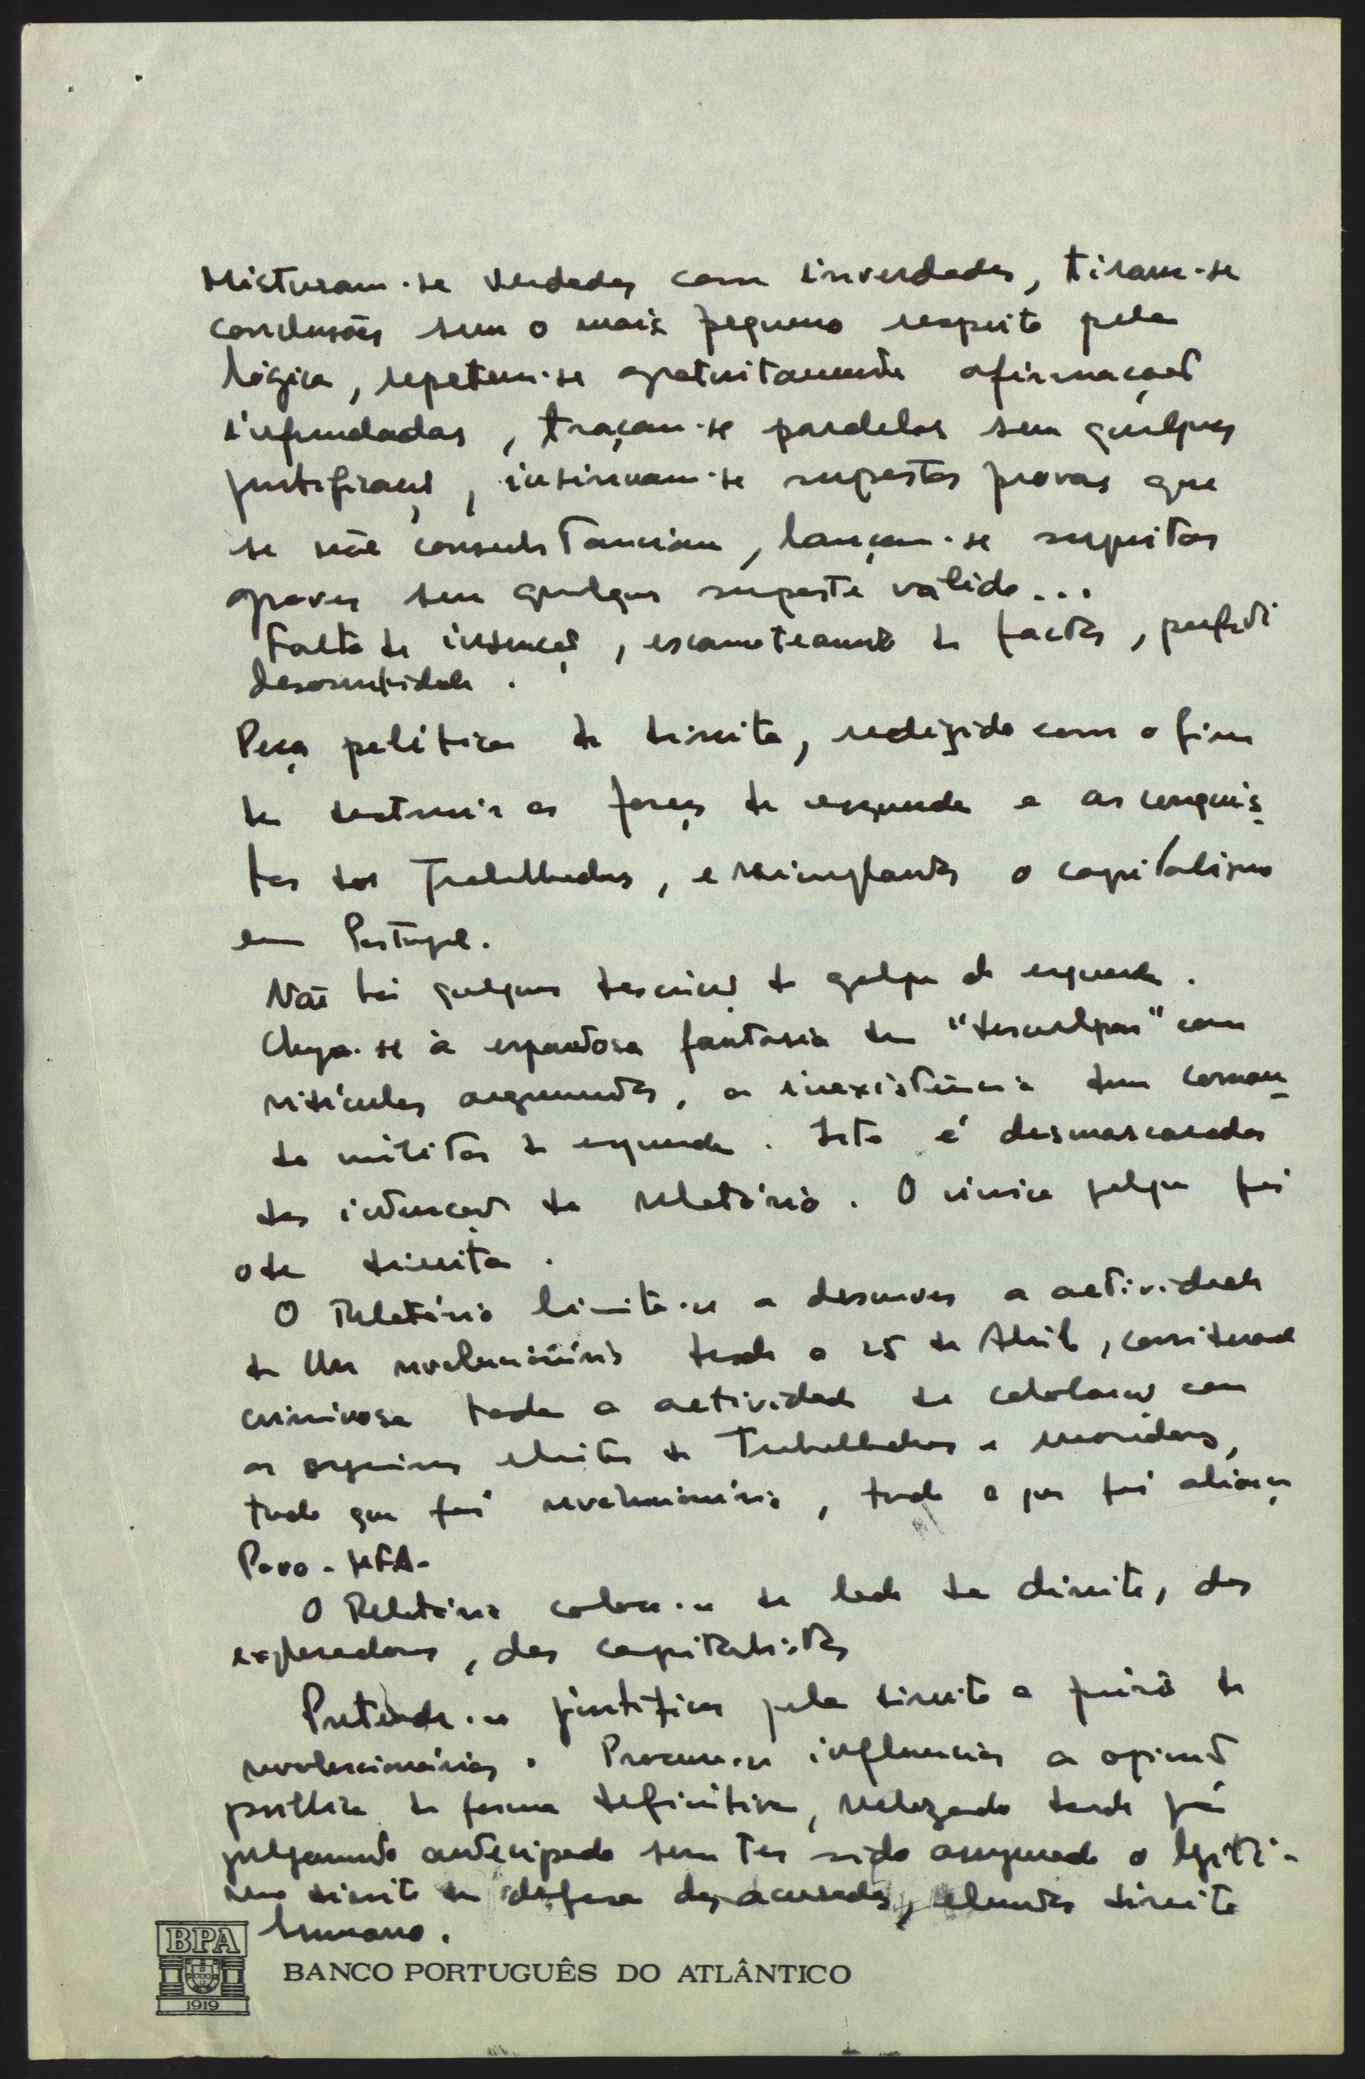 Misturam-se verdades com inverdades, tiram-se
conclusões sem o mais pequeno respeito pela
lógica, repetem-se gratuitamente afirmações
infundadas, traçam-se paralelos sem qualquer
justificação, insinuam-se supostas provas que
se não consubstanciam, lançam-se suspeitas
graves sem qualquer suporte válido...
Falta de isenção, escamoteamento de factos, perfeita
desonestidade.
Peça política de direita, redigida com o fim
de destruir as forças de esquerda e as conquis-
tas dos trabalhadores, e reimplantar o capitalismo
em Portugal.
Não há qualquer descrição de golpe de esquerda.
Chega-se à espantosa fantasia de "desculpar" com
ridículos argumentos, a inexistência dum coman-
do militar de esquerda. Isto é desmascarador
das intenções do relatório. O único golpe foi
o da direita.
O Relatório limita-se a descrever a actividade
de revolucionários desde o 25 de Abril, considerando
criminosa toda a actividade de colaboração com
os órgãos eleitos de Trabalhadores e moradores,
tudo que foi revolucionário, tudo o que foi aliança
Povo-MFA-
O Relatório coloca-se do lado da direita, dos
exploradores, dos capitalistas
Pretende-se justificar pela direita a prisão de
revolucionários. Procura-se influenciar a opinião
pública de forma definitiva, realizando desde já
julgamento antecipado sem ter sido assegurado o legíti-
mo direito de defesa dos acusados, elementar direito
humano.
BPA
1919
BANCO PORTUGUÊS DO ATLÂNTICO